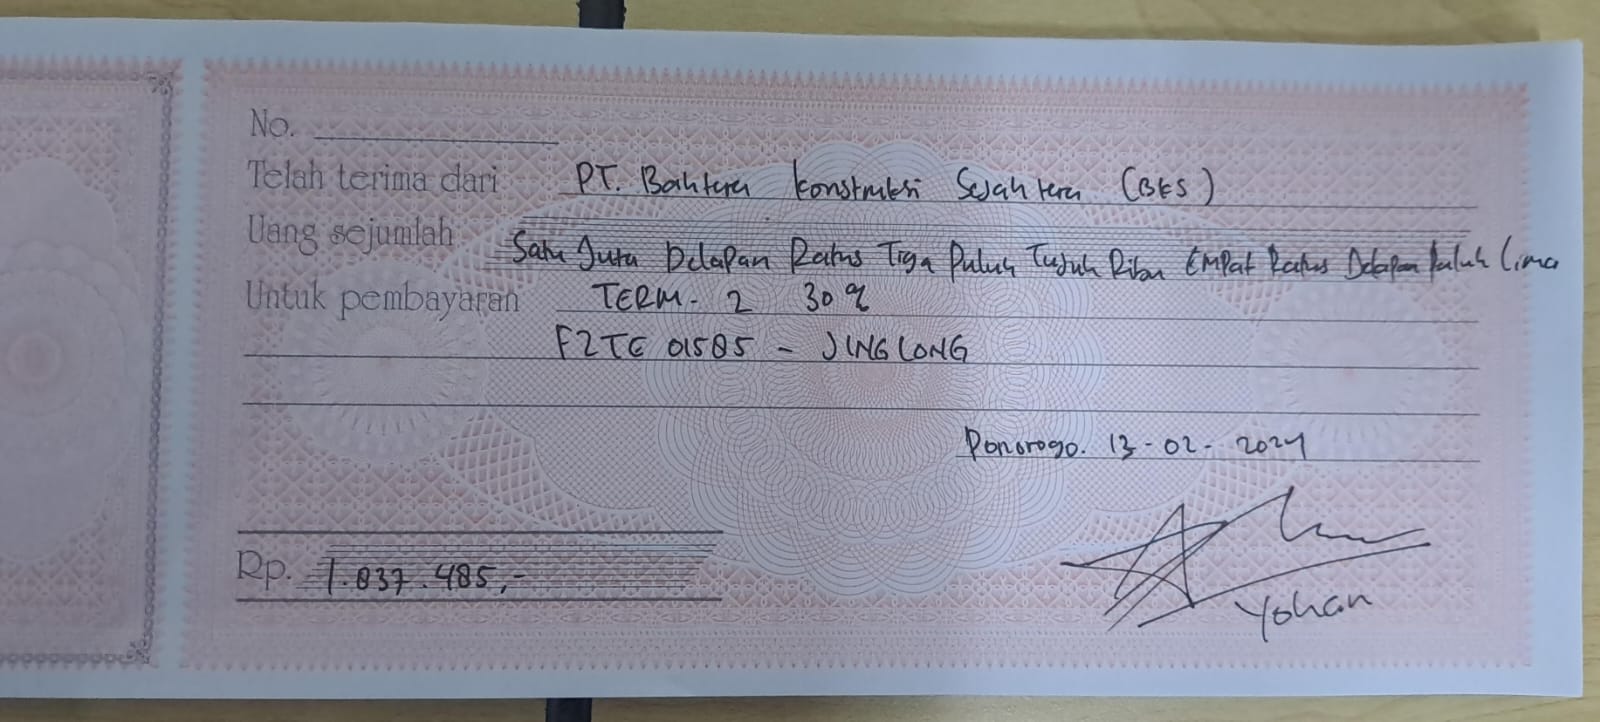 No.
Telah terima dari PT. Bahtera Konstruksi Sejahtera (BKS)
Uang sejumlah Satu Juta Delapan Ratus Tiga Puluh Tujuh Ribu Empat Ratus Delapan Puluh Lima
Untuk pembayaran TERM - 2 30 %
F2TE 01585 - JINGLONG
Ponorogo. 13 - 02 - 2024
Rp. 1.837.485,-
Yohan